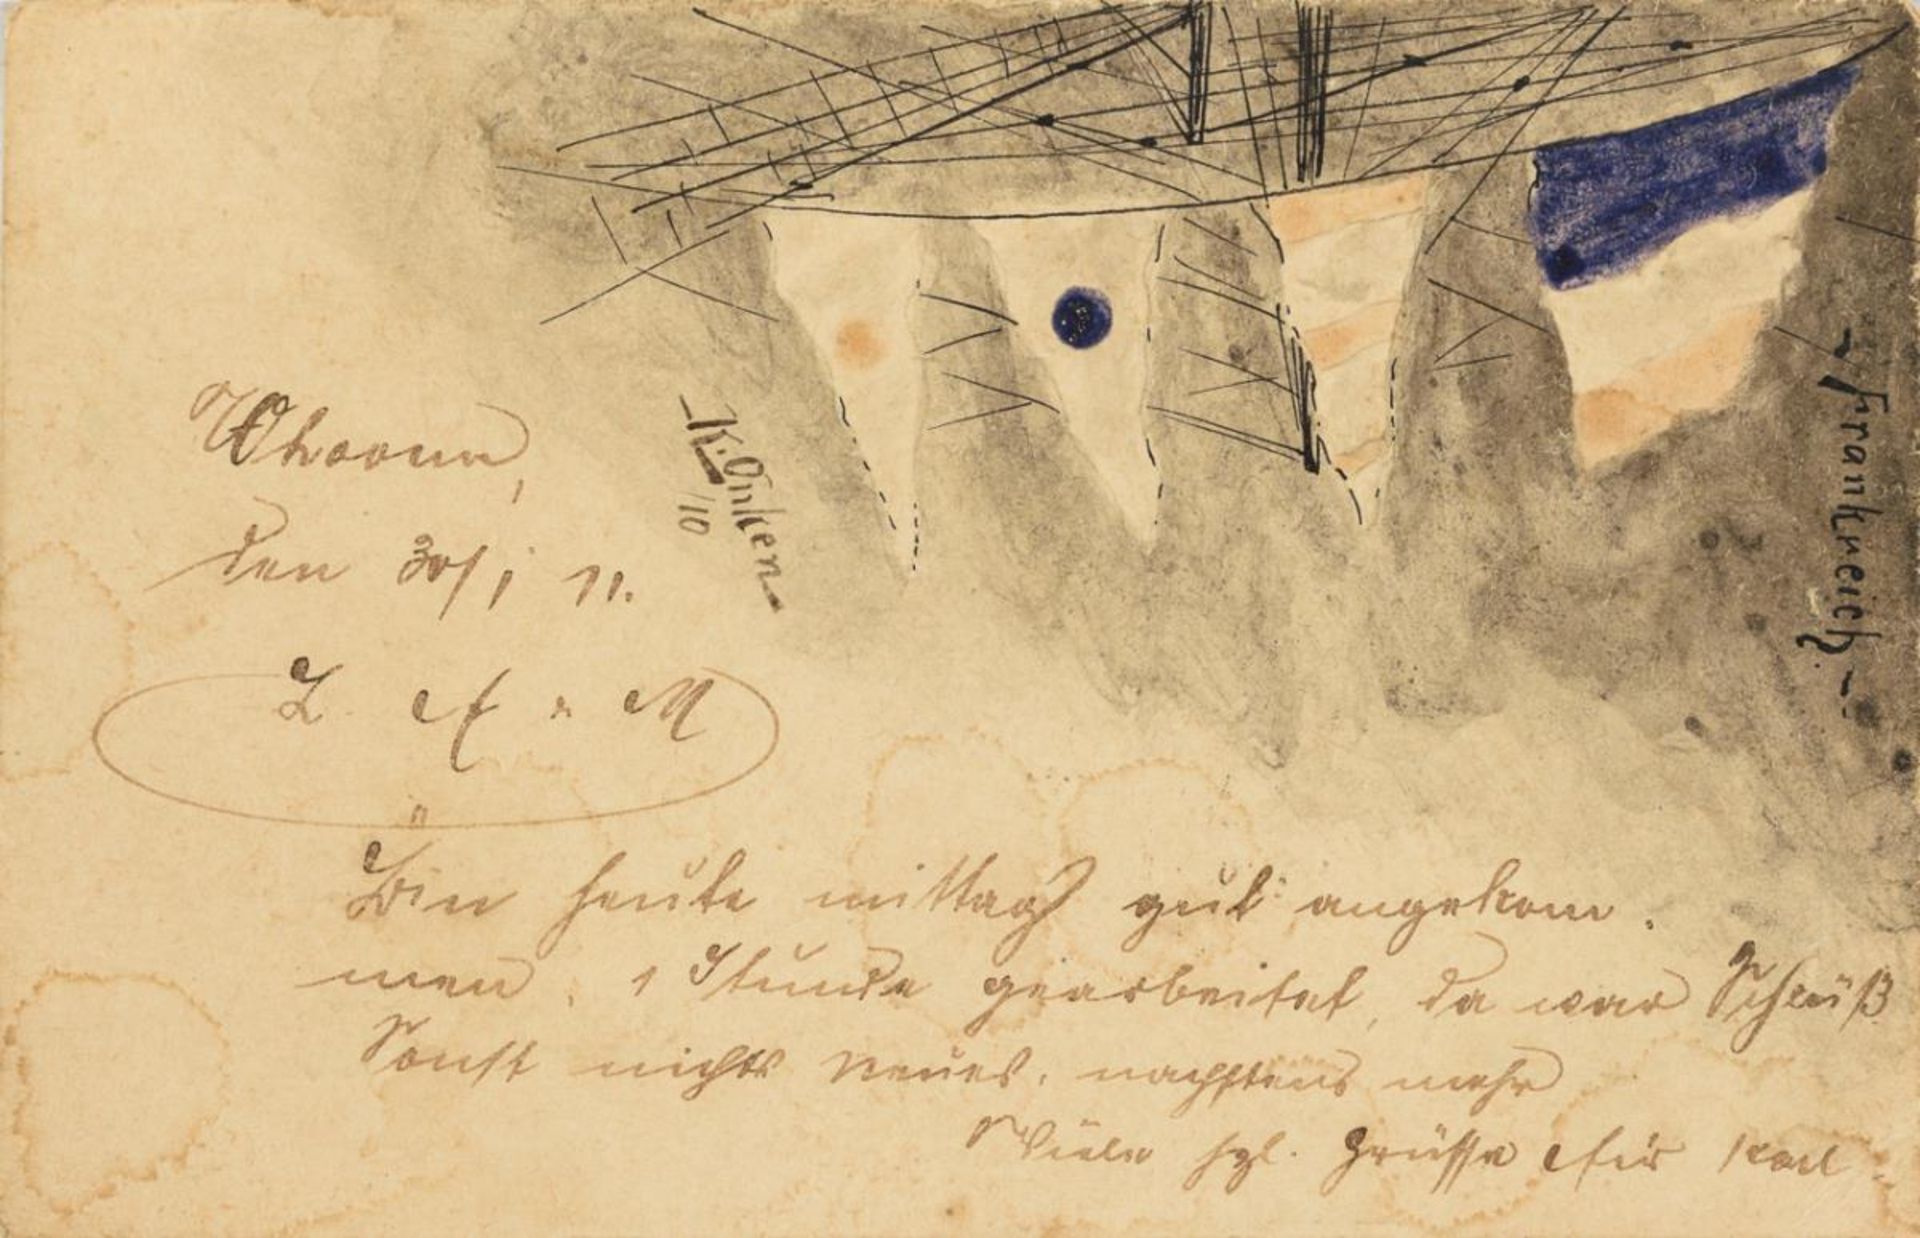 K. Onken
/10
~ Frankreich ~
den 30/1 11.
L. E. u. M
Bin heute mittag gut angekom-
men, 1 Stunde gearbeitet, da war Schluß
Sonst nichts neues, nächstens mehr
Viele hzl. Grüsse Karl